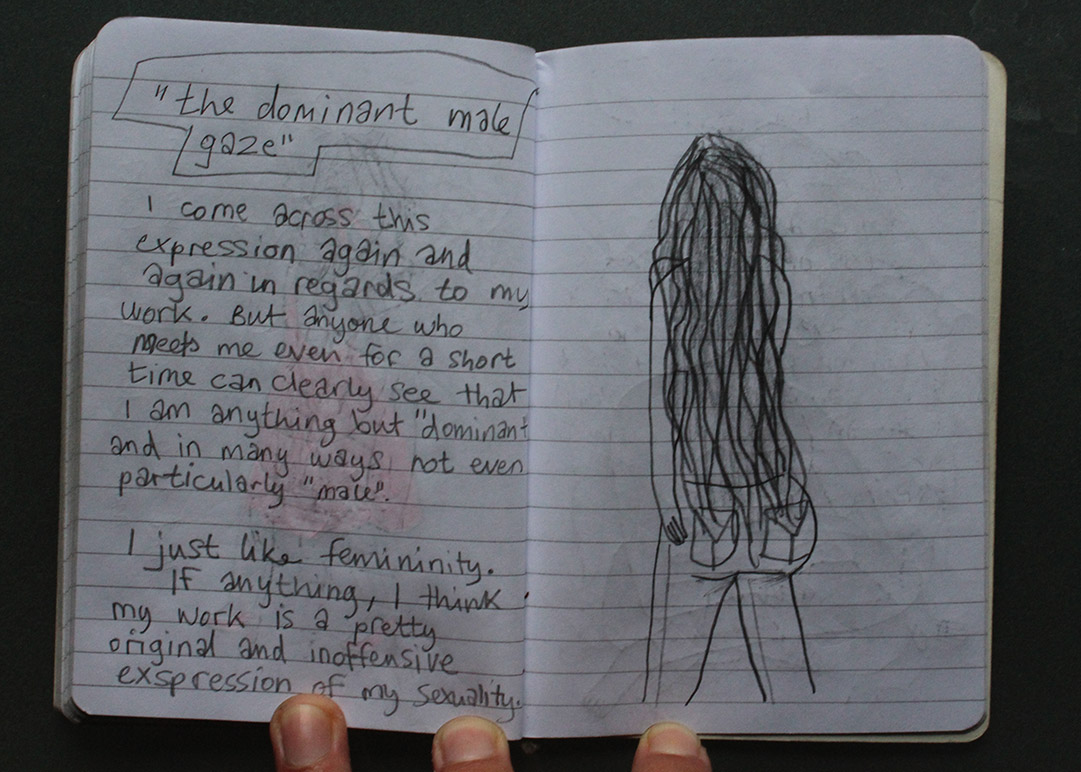 "the dominant male
gaze"
I come across this
expression again and
again in regards to my
work. But anyone who
meets me even for a short
time can clearly see that
I am anything but "dominant
and in many ways, not even
particularly "male".
I just like femininity.
If anything, I think
my work is a pretty
original and inoffensive
exspression of my sexuality.